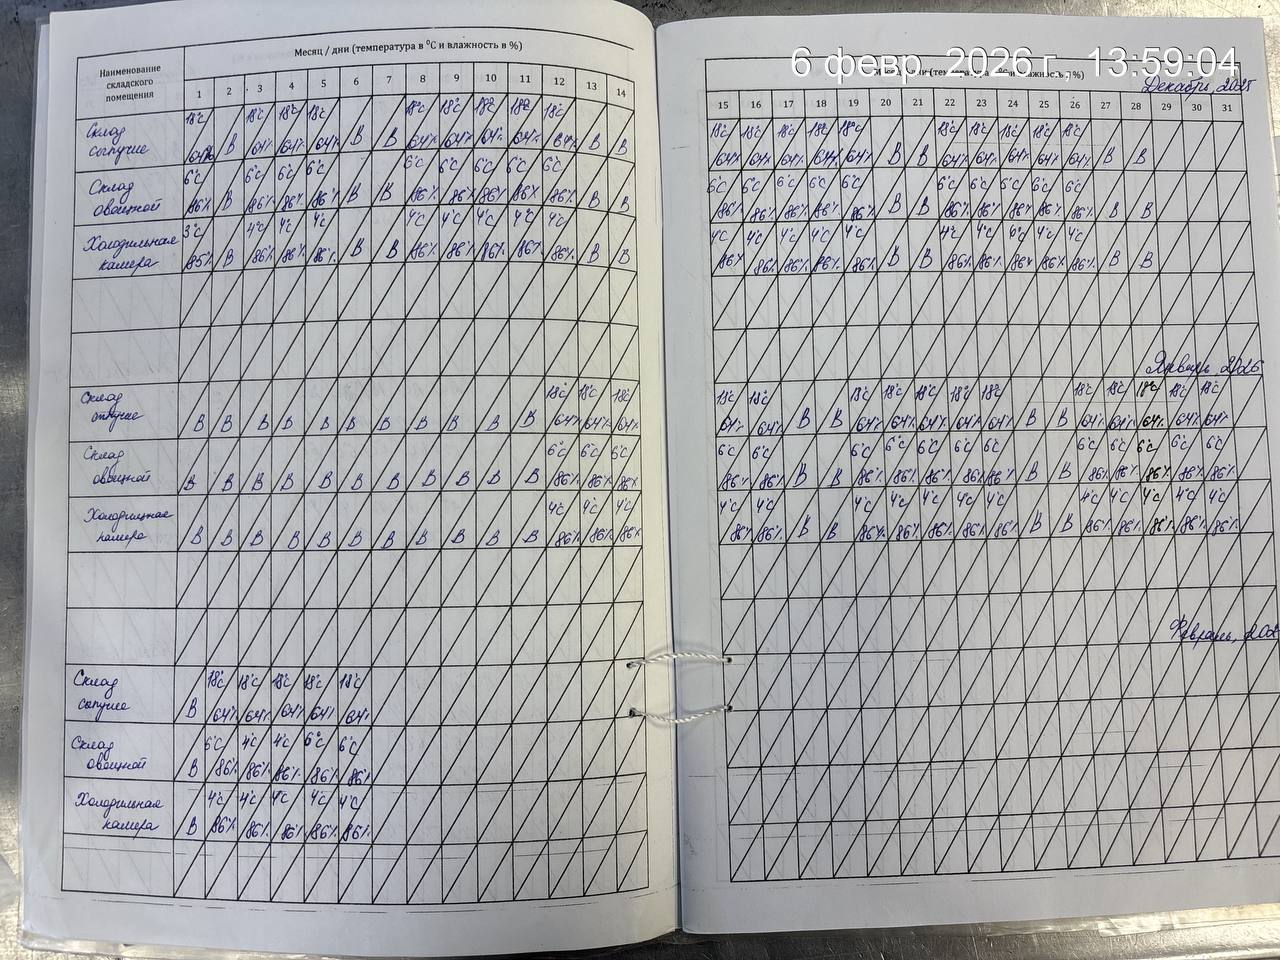 6 февр. 2026 г. 13:59:04
Месяц / дни (температура в °С и влажность в %)
Наименование складского помещения
1 2 3 4 5 6 7 8 9 10 11 12 13 14
Склад сыпучие
18°С 18°С 18°С 18°С 18°С 18°С 18°С 18°С 18°С
64% В 64% 64% 64% В В 64% 64% 64% 64% 64% В В
Склад овощной
6°С 6°С 6°С 6°С 6°С 6°С 6°С 6°С 6°С
86% В 86% 86% 86% В В 86% 86% 86% 86% 86% В В
Холодильная камера
3°С 4°С 4°С 4°С 4°С 4°С 4°С 4°С 4°С
85% В 86% 86% 86% В В 86% 86% 86% 86% 86% В В
Склад
В В В В В В В В В В В
18°С 18°С 18°С
64% 64% 64%
Склад овощной
6°С 6°С 6°С
В В В В В В В В В В В 86% 86% 86%
Холодильная камера
4°С 4°С 4°С
В В В В В В В В В В В 86% 86% 86%
Склад сыпучие
18°С 18°С 18°С 18°С 18°С
В 64% 64% 64% 64% 64%
Склад овощной
6°С 4°С 4°С 6°С 6°С
В 86% 86% 86% 86% 86%
Холодильная камера
4°С 4°С 4°С 4°С 4°С
В 86% 86% 86% 86% 86%
Декабрь, 2025
15 16 17 18 19 20 21 22 23 24 25 26 27 28 29 30 31
18°С 18°С 18°С 18°С 18°С 18°С 18°С 18°С 18°С 18°С
64% 64% 64% 64% 64% В В 64% 64% 64% 64% 64% В В
6°С 6°С 6°С 6°С 6°С 6°С 6°С 6°С 6°С
86% 86% 86% 86% 86% В В 86% 86% 86% 86% 86% В В
4°С 4°С 4°С 4°С 4°С 4°С 4°С 4°С 4°С
86% 86% 86% 86% 86% В В 86% 86% 86% 86% 86% В В
Январь 2026
18°С 18°С 18°С 18°С 18°С 18°С 18°С 18°С 18°С 18°С 18°С 18°С
64% 64% В В 64% 64% 64% 64% 64% В В 64% 64% 64% 64% 64%
6°С 6°С 6°С 6°С 6°С 6°С 6°С 6°С 6°С 6°С 6°С 6°С
86% 86% В В 86% 86% 86% 86% 86% В В 86% 86% 86% 86% 86%
4°С 4°С 4°С 4°С 4°С 4°С 4°С 4°С 4°С 4°С 4°С 4°С
86% 86% В В 86% 86% 86% 86% 86% В В 86% 86% 86% 86% 86%
Февраль, 202